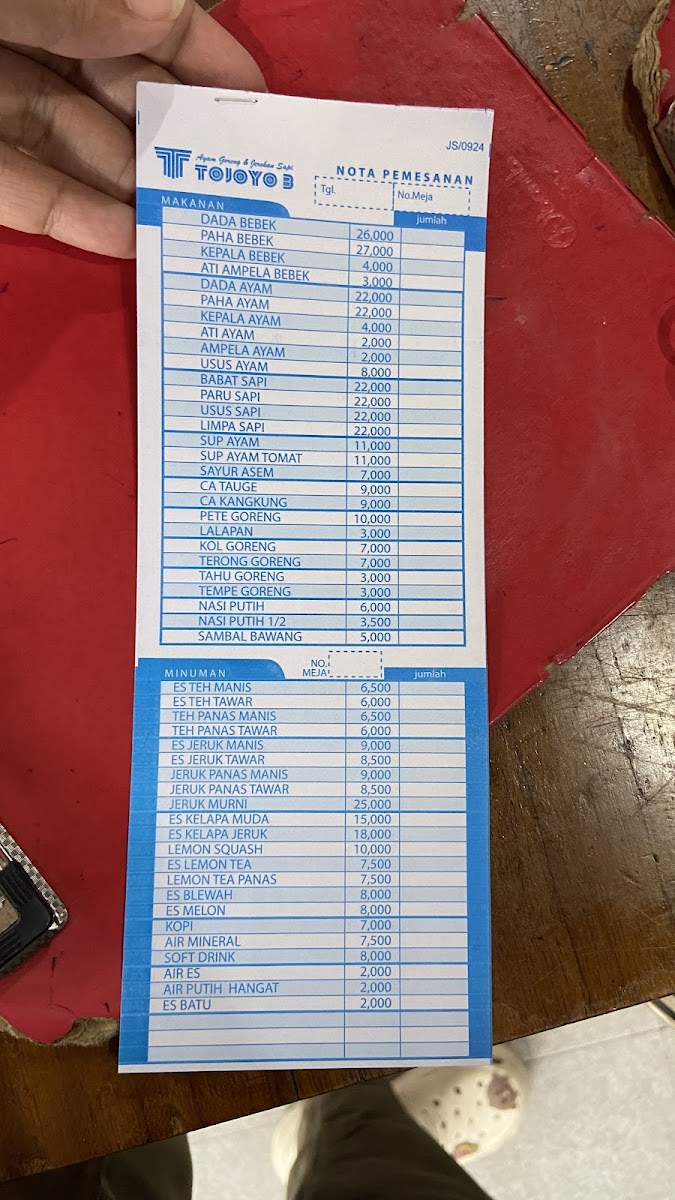 JS/0924
Ayam Goreng & Jerohan Sapi
TOJOYO 3
NOTA PEMESANAN
Tgl. No.Meja
MAKANAN jumlah
DADA BEBEK 26,000
PAHA BEBEK 27,000
KEPALA BEBEK 4,000
ATI AMPELA BEBEK 3,000
DADA AYAM 22,000
PAHA AYAM 22,000
KEPALA AYAM 4,000
ATI AYAM 2,000
AMPELA AYAM 2,000
USUS AYAM 8,000
BABAT SAPI 22,000
PARU SAPI 22,000
USUS SAPI 22,000
LIMPA SAPI 22,000
SUP AYAM 11,000
SUP AYAM TOMAT 11,000
SAYUR ASEM 7,000
CA TAUGE 9,000
CA KANGKUNG 9,000
PETE GORENG 10,000
LALAPAN 3,000
KOL GORENG 7,000
TERONG GORENG 7,000
TAHU GORENG 3,000
TEMPE GORENG 3,000
NASI PUTIH 6,000
NASI PUTIH 1/2 3,500
SAMBAL BAWANG 5,000
MINUMAN NO. MEJA jumlah
ES TEH MANIS 6,500
ES TEH TAWAR 6,000
TEH PANAS MANIS 6,500
TEH PANAS TAWAR 6,000
ES JERUK MANIS 9,000
ES JERUK TAWAR 8,500
JERUK PANAS MANIS 9,000
JERUK PANAS TAWAR 8,500
JERUK MURNI 25,000
ES KELAPA MUDA 15,000
ES KELAPA JERUK 18,000
LEMON SQUASH 10,000
ES LEMON TEA 7,500
LEMON TEA PANAS 7,500
ES BLEWAH 8,000
ES MELON 8,000
KOPI 7,000
AIR MINERAL 7,500
SOFT DRINK 8,000
AIR ES 2,000
AIR PUTIH HANGAT 2,000
ES BATU 2,000